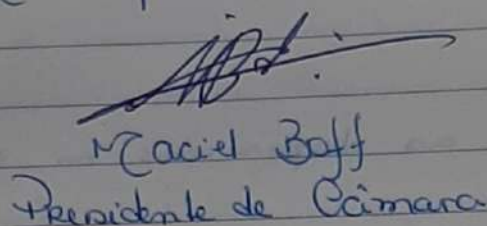 Maciel Boff
Presidente de Câmara